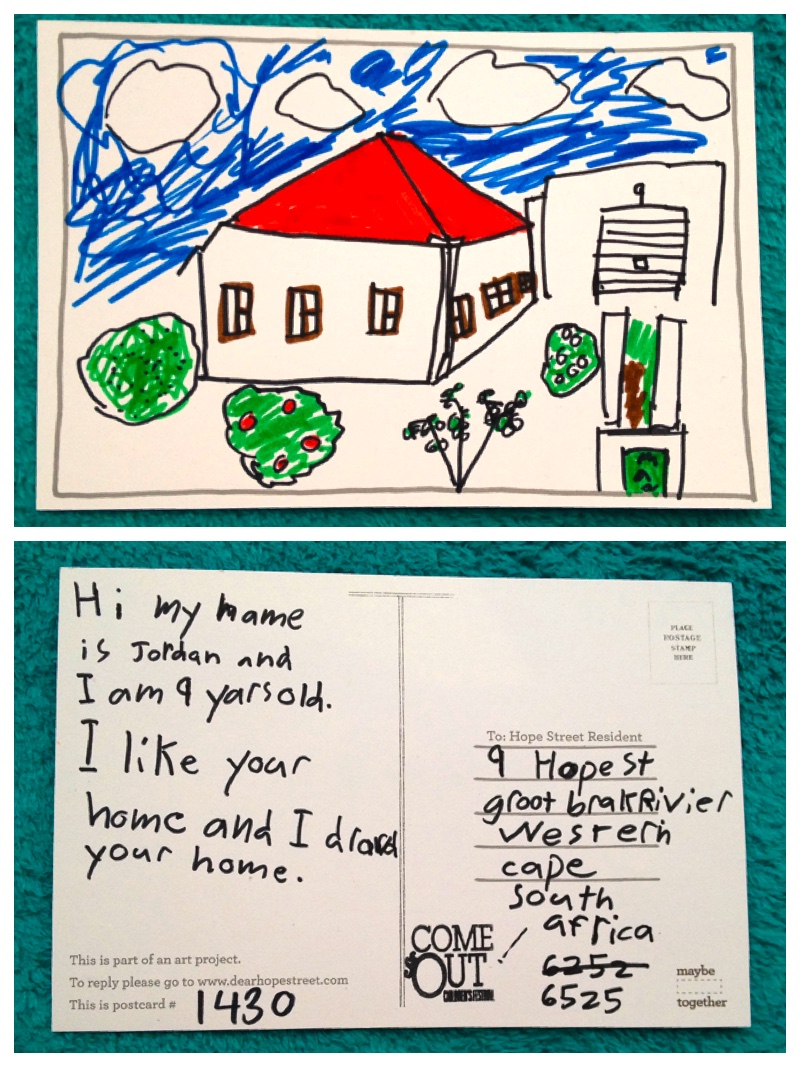 9
Hi my name
is Jordan and
I am 9 yarsold.
I like your
home and I drawd
your home.
This is part of an art project.
To reply please go to www.dearhopestreet.com
This is postcard # 1430
PLACE
POSTAGE
STAMP
HERE
To: Hope Street Resident
9 Hope st
groot brakRivier
Western
cape
south
africa
6252
6525
COME
OUT
CHILDREN'S FESTIVAL
maybe
together